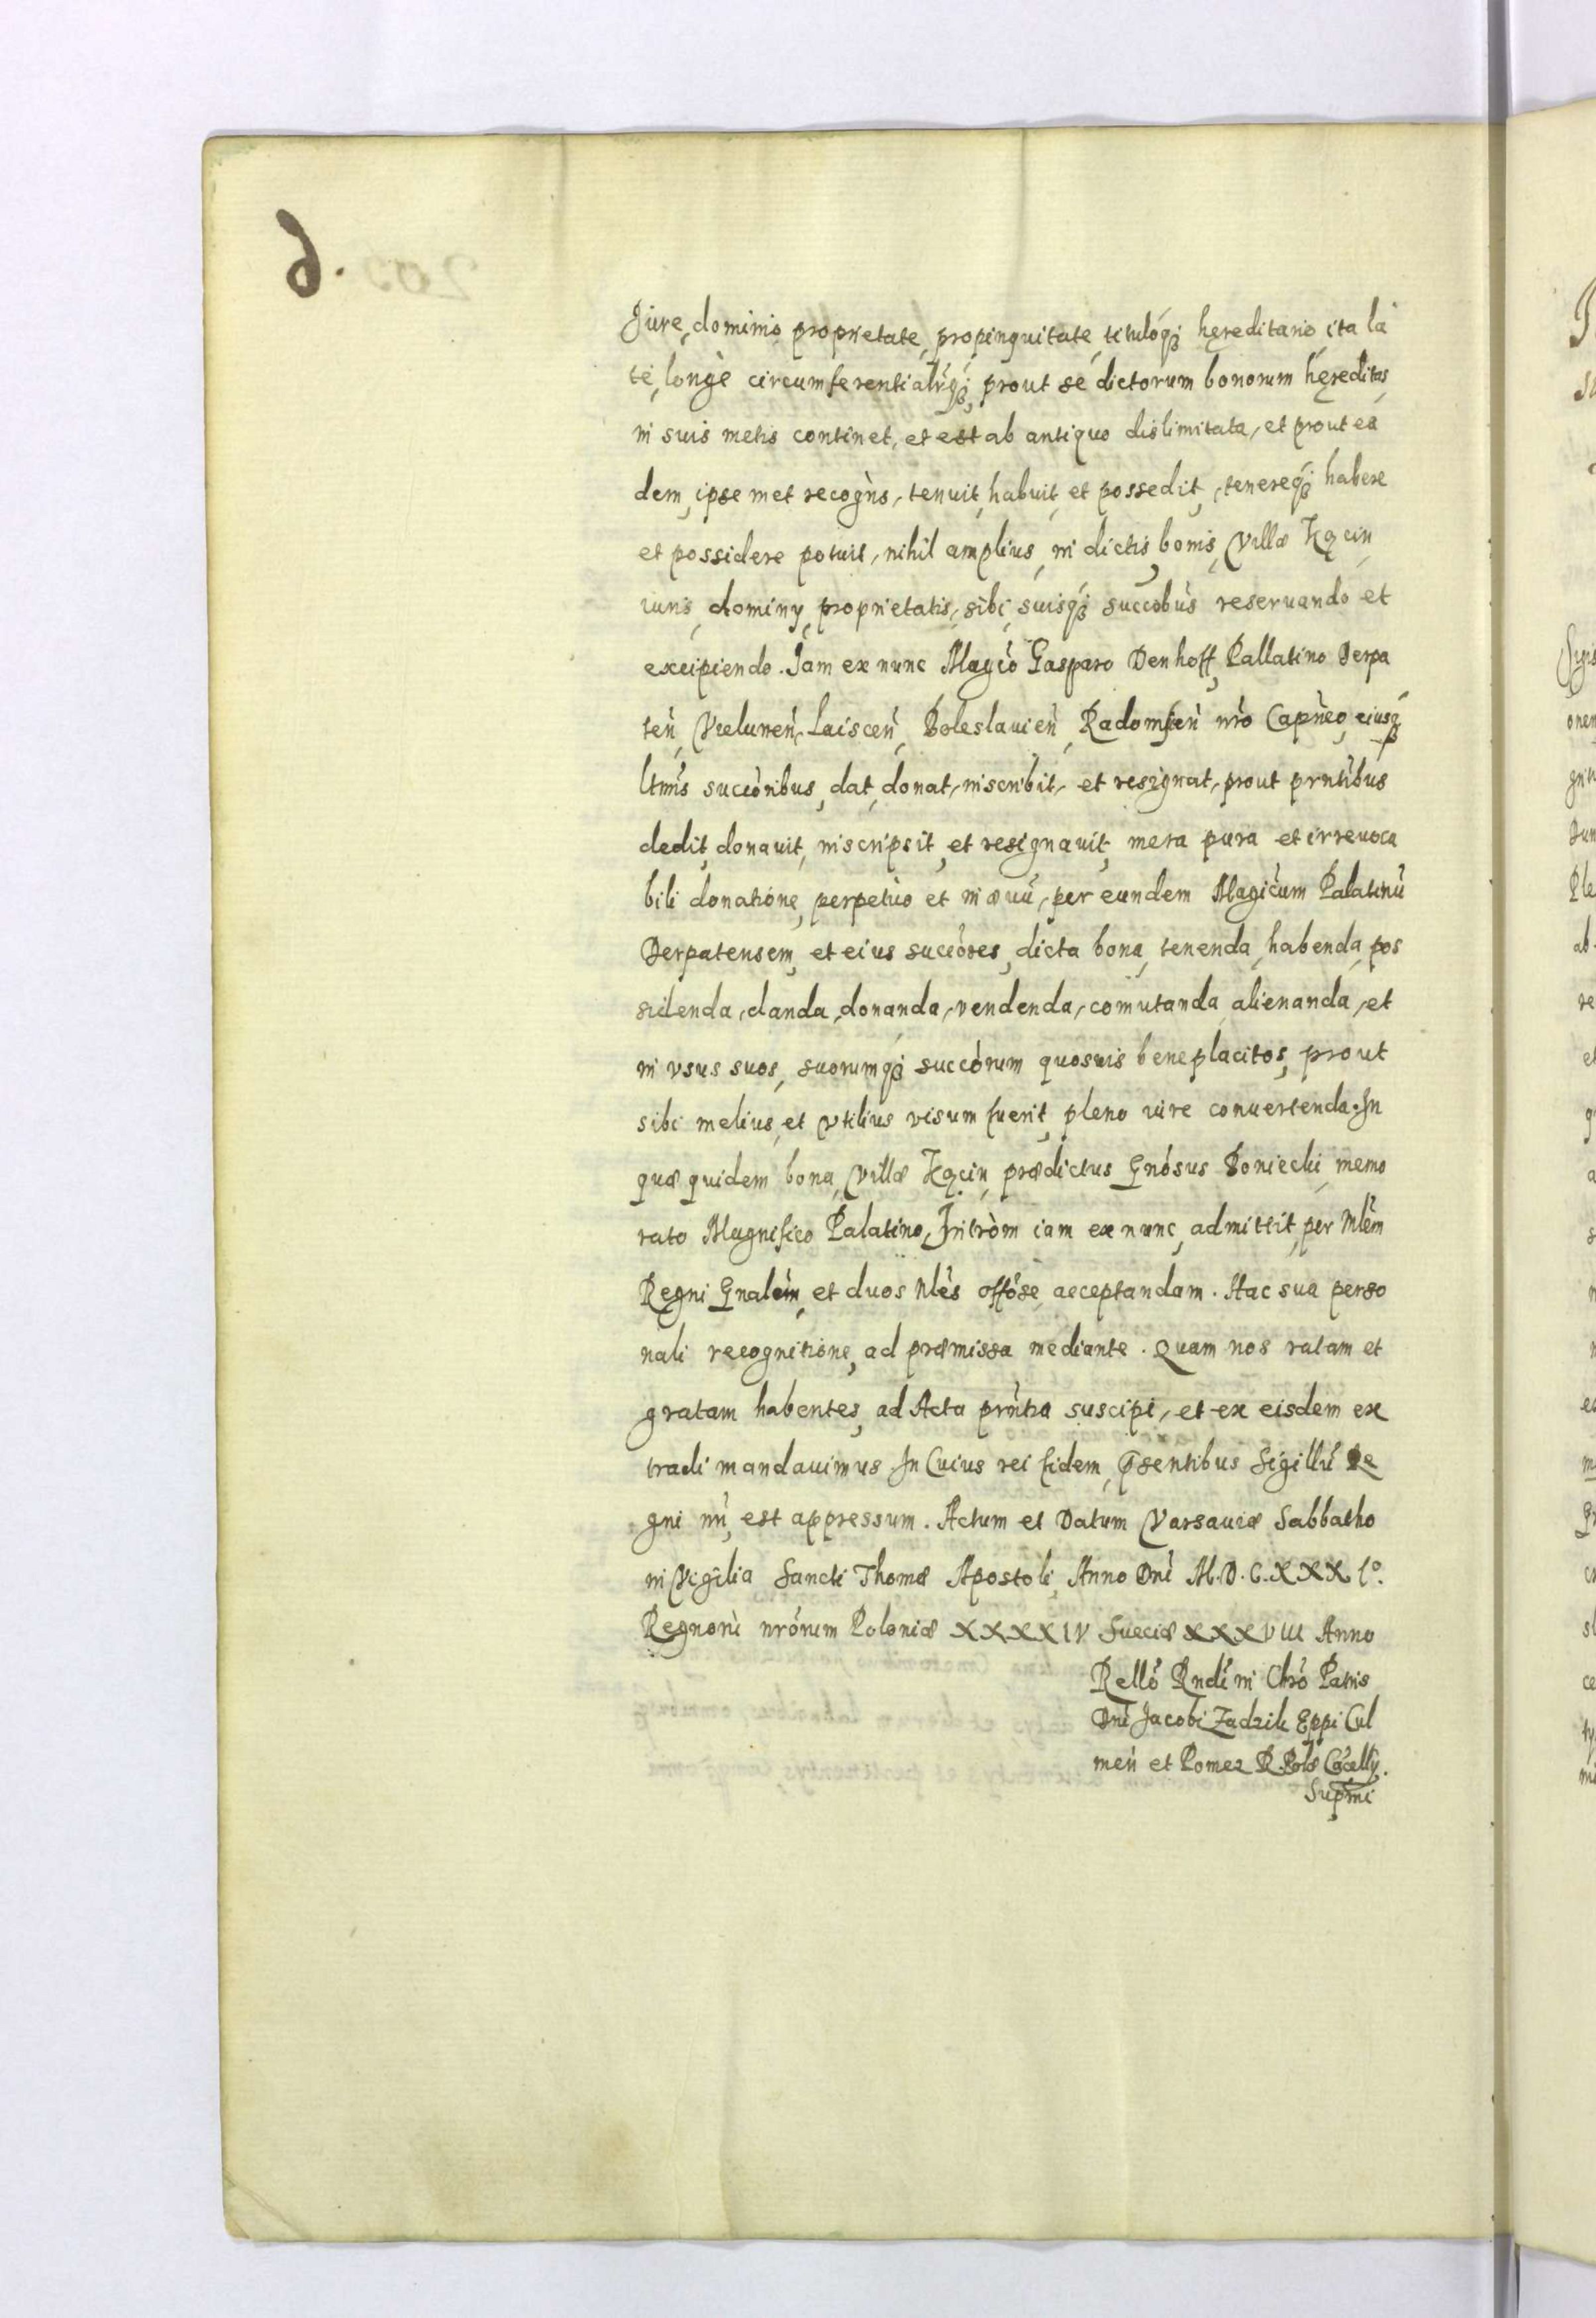 6.
Jure, dominio proprietate, propinquitate, tituloq₃ hęreditario, ita la
tè, longè circumferentialr̃q₃, prout se dictorum bonorum hęreditas,
in suis metis continet, et est ab antiquo dislimitata, et prout ea
dem, ipse met recogn̄s, tenuit, habuit, et possedit, tenereq₃ habere
et possidere potuit, nihil amplius, in dictis, bonis, Villæ Kącin,
iuris, dominy, proprietatis, sibi, suisq₃ succobūs reseruando et
excipiendo. Jam ex nunc Magc̃o Gasparo Denhoff, Pallatino Derpa
teñ, Vieluneñ, Laisceñ, Boleslauieñ, Radomsceñ nr̃o Capñeo, eiusq₃
ltmīs succōribus, dat, donat, inscribit, et resignat, prout prn̄tibus
dedit, donauit, inscripsit, et resignauit, mera pura et irreuoca
bili donatione, perpetùo et in æuū, per eundem Magic̃um Palatinū
Derpatensem, et eius succōres, dicta bona, tenenda, habenda, pos
sidenda, danda, donanda, vendenda, comutanda, alienanda, et
in vsus suos, suorumq₃ succōrum quosuis beneplacitos, prout
sibi melius, et vtilius visum fuerit, pleno iùre conuertenda. In
quæ quidem bona, Villæ Kącin, prædictus Gnōsus Boniecki, memo
rato Magnifico Palatino, Intròm iam ex nunc, admittit, per Mlēm
Regni Gnalēm, et duos Nlēs offōse acceptandam. Hac sua perso
nali recognitione, ad præmissa mediante. Quam nos ratam et
gratam habentes, ad Acta prn̄tia suscipi, et ex eisdem ex
tradi mandauimus. In Cuius rei fidem, p̄sentibus Sigillū Re
gni nrī, est appressum. Actum et Datum Varsauiæ Sabbatho
in Vigilia Sancti Thomæ Apostoli, Anno Dnī M.D.C.XXX.Iº.
Regnorū nrōrum Poloniæ XXXXIV Sueciæ XXXVIII Anno
Rellō Rndī in Chrō Patris
Dnī Jacobi Zadzik Eppi Cul
meñ et Pomez R. Polæ Cācelly.
Supm̄i